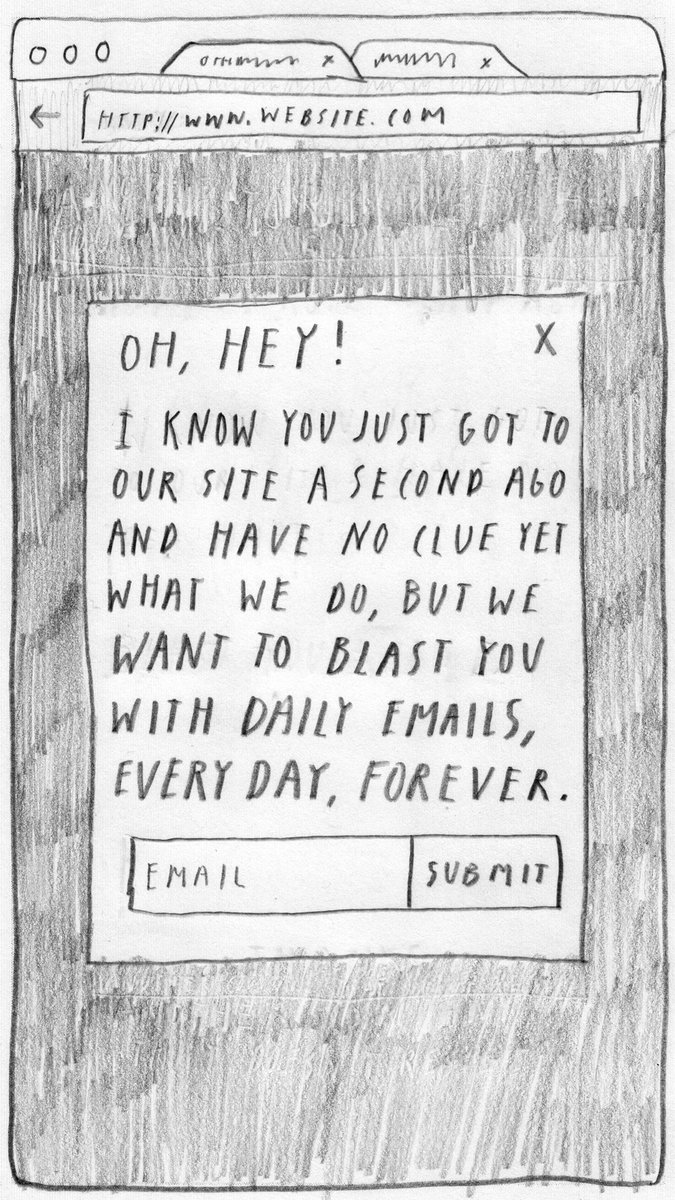 x x
HTTP://WWW.WEBSITE.COM
OH, HEY! X
I KNOW YOU JUST GOT TO
OUR SITE A SECOND AGO
AND HAVE NO CLUE YET
WHAT WE DO, BUT WE
WANT TO BLAST YOU
WITH DAILY EMAILS,
EVERY DAY, FOREVER.
EMAIL SUBMIT